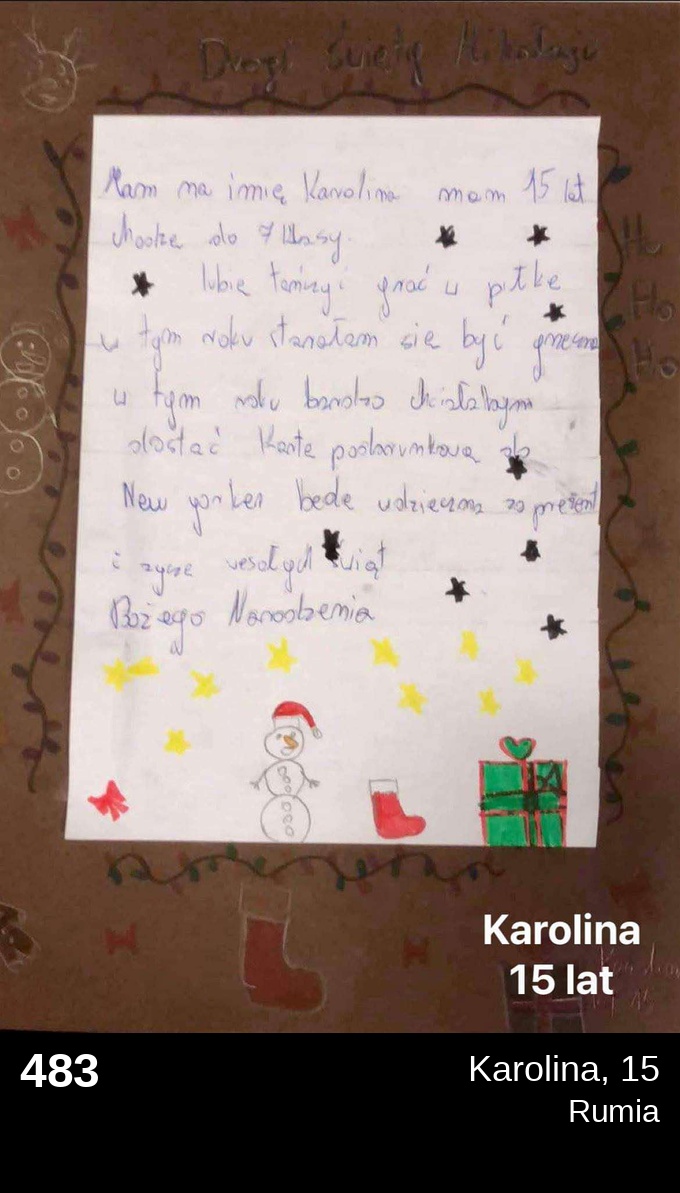 Drogi Święty Mikołaju
Mam na imię Karolina mam 15 lat
chodze do 7 klasy.
lubię tańczyć i grać w piłke
w tym roku starałam się być grzeczna
w tym roku bardzo chciałabym
dostać Karte podarunkową do
New yorker bede wdzięczna za prezent
i zycze wesołych świąt
Bożego Narodzenia
Ho
Ho
Ho
Karolina
15 lat
483
Karolina, 15
Rumia